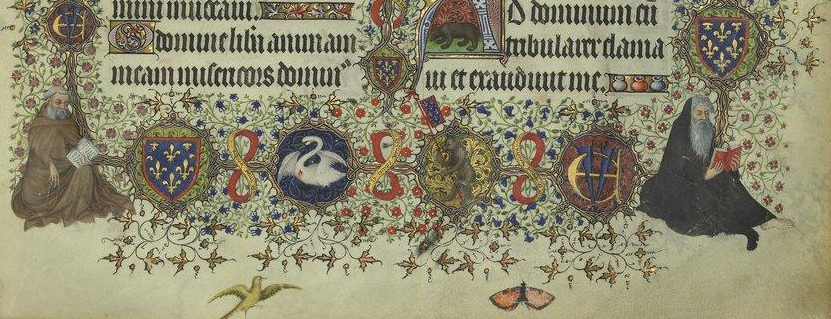 mini inuocaui.
O domine liba animam
meam misericors domin
AD dominum cū
tribularer clama
ui et exaudiuit me.